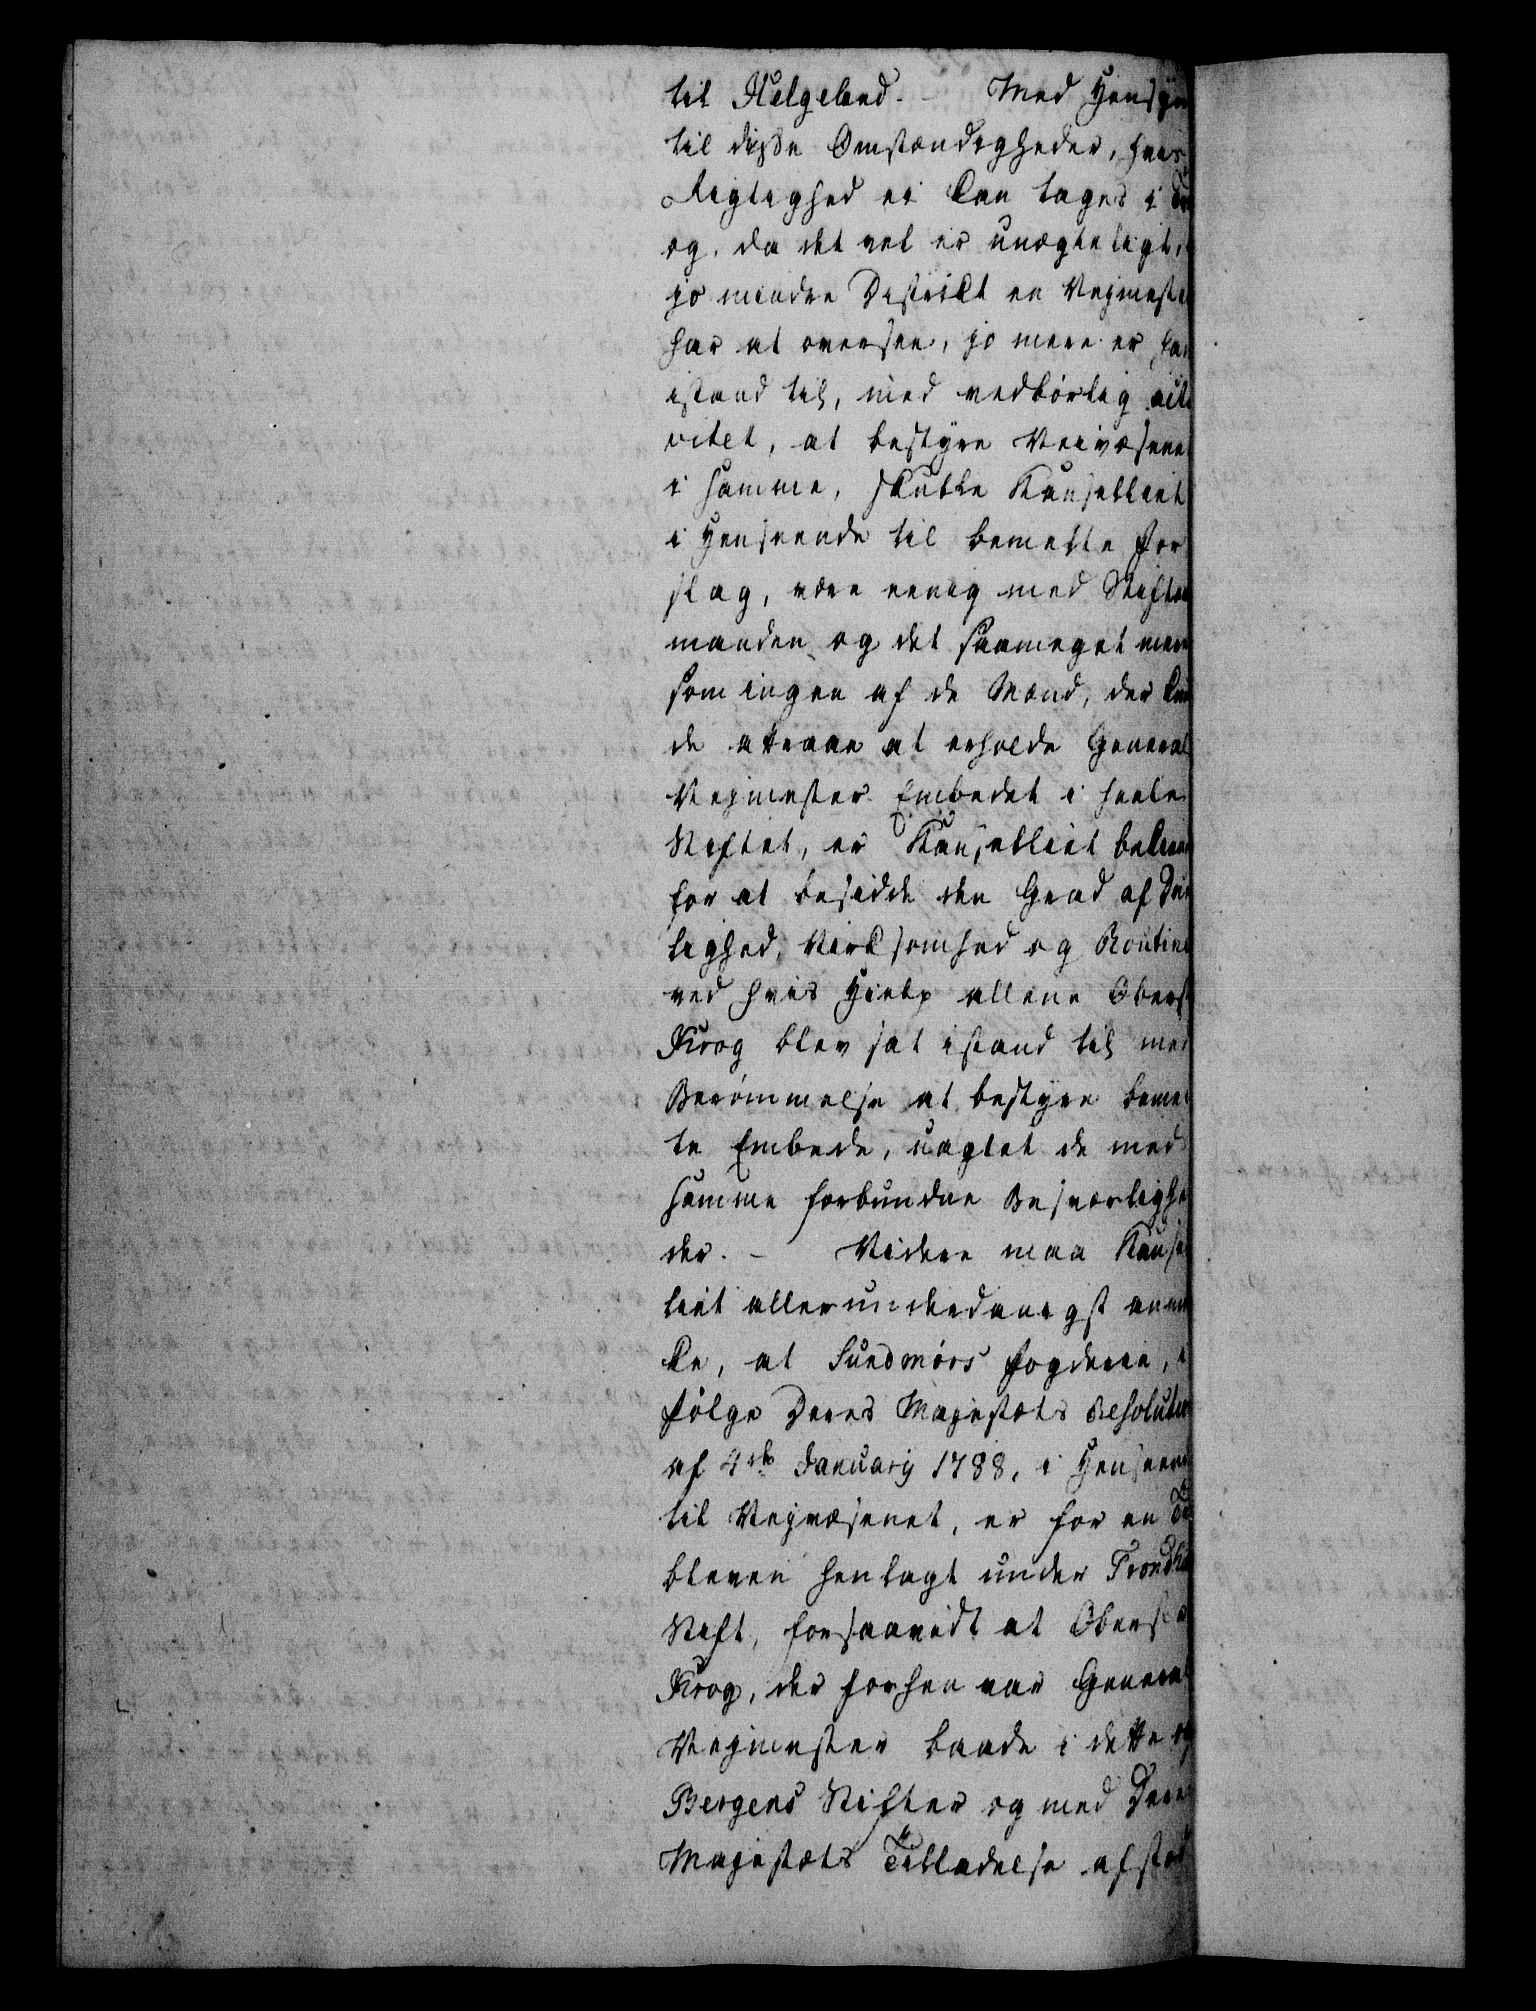 til Helgeland. - Med Hensyn
til disse Omstændigheder, hvis
Rigtighed ei kan tages i
og, da det vel er unægteligt,
jo mindre District en Vejmeste
har at oversee, jo mere er han
istand til, med vedbørlig acti
vitet, at bestyre Veivæsene
i samme, skulde Kancelliet
i Henseende til bemeldte For
slag, være eenig med Stiftamt
manden og det saameget mere
som ingen af de Mænd, der kun
de attraae at erholde General
Vejmester Embedet i heele
Stiftet, er Kancelliet bekiendt
for at besidde den Grad af Due
lighed, Virksomhed og Routine
ved hvis Hielp allene Oberst
Krog blev sat istand til med
Berømmelse at bestyre bemel
te Embede, uagtet de med
samme forbundne Besværlighe
der. - Videre maa Kancel
liet allerunderdanigst anmær
ke, at Sundmørs Fogderie, i
følge Deres Majestæts Resolution
af 4de January 1788, i Henseende
til Vejvæsenet, er for en Tid
bleven henlagt under Trondhiems
Stift, forsaavidt at Oberst
Krog, der forhen var General
Vejmester baade i dette og
Bergens Stifter og med Deres
Majestæts Tilladelse afstod